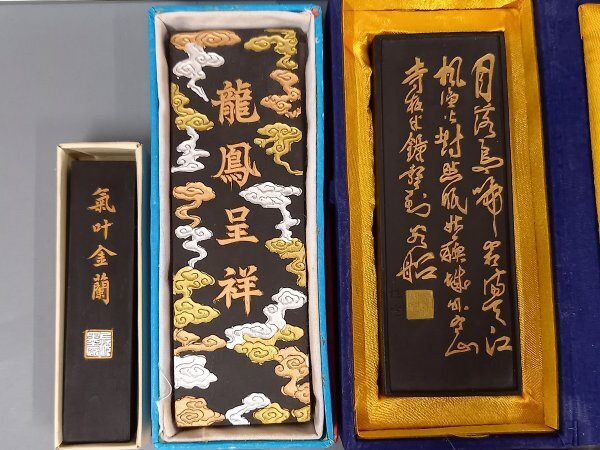 氣叶金蘭
龍鳳呈祥
月落烏啼霜滿天江
楓漁火對愁眠姑蘇城外寒山
寺夜半鐘聲到客船